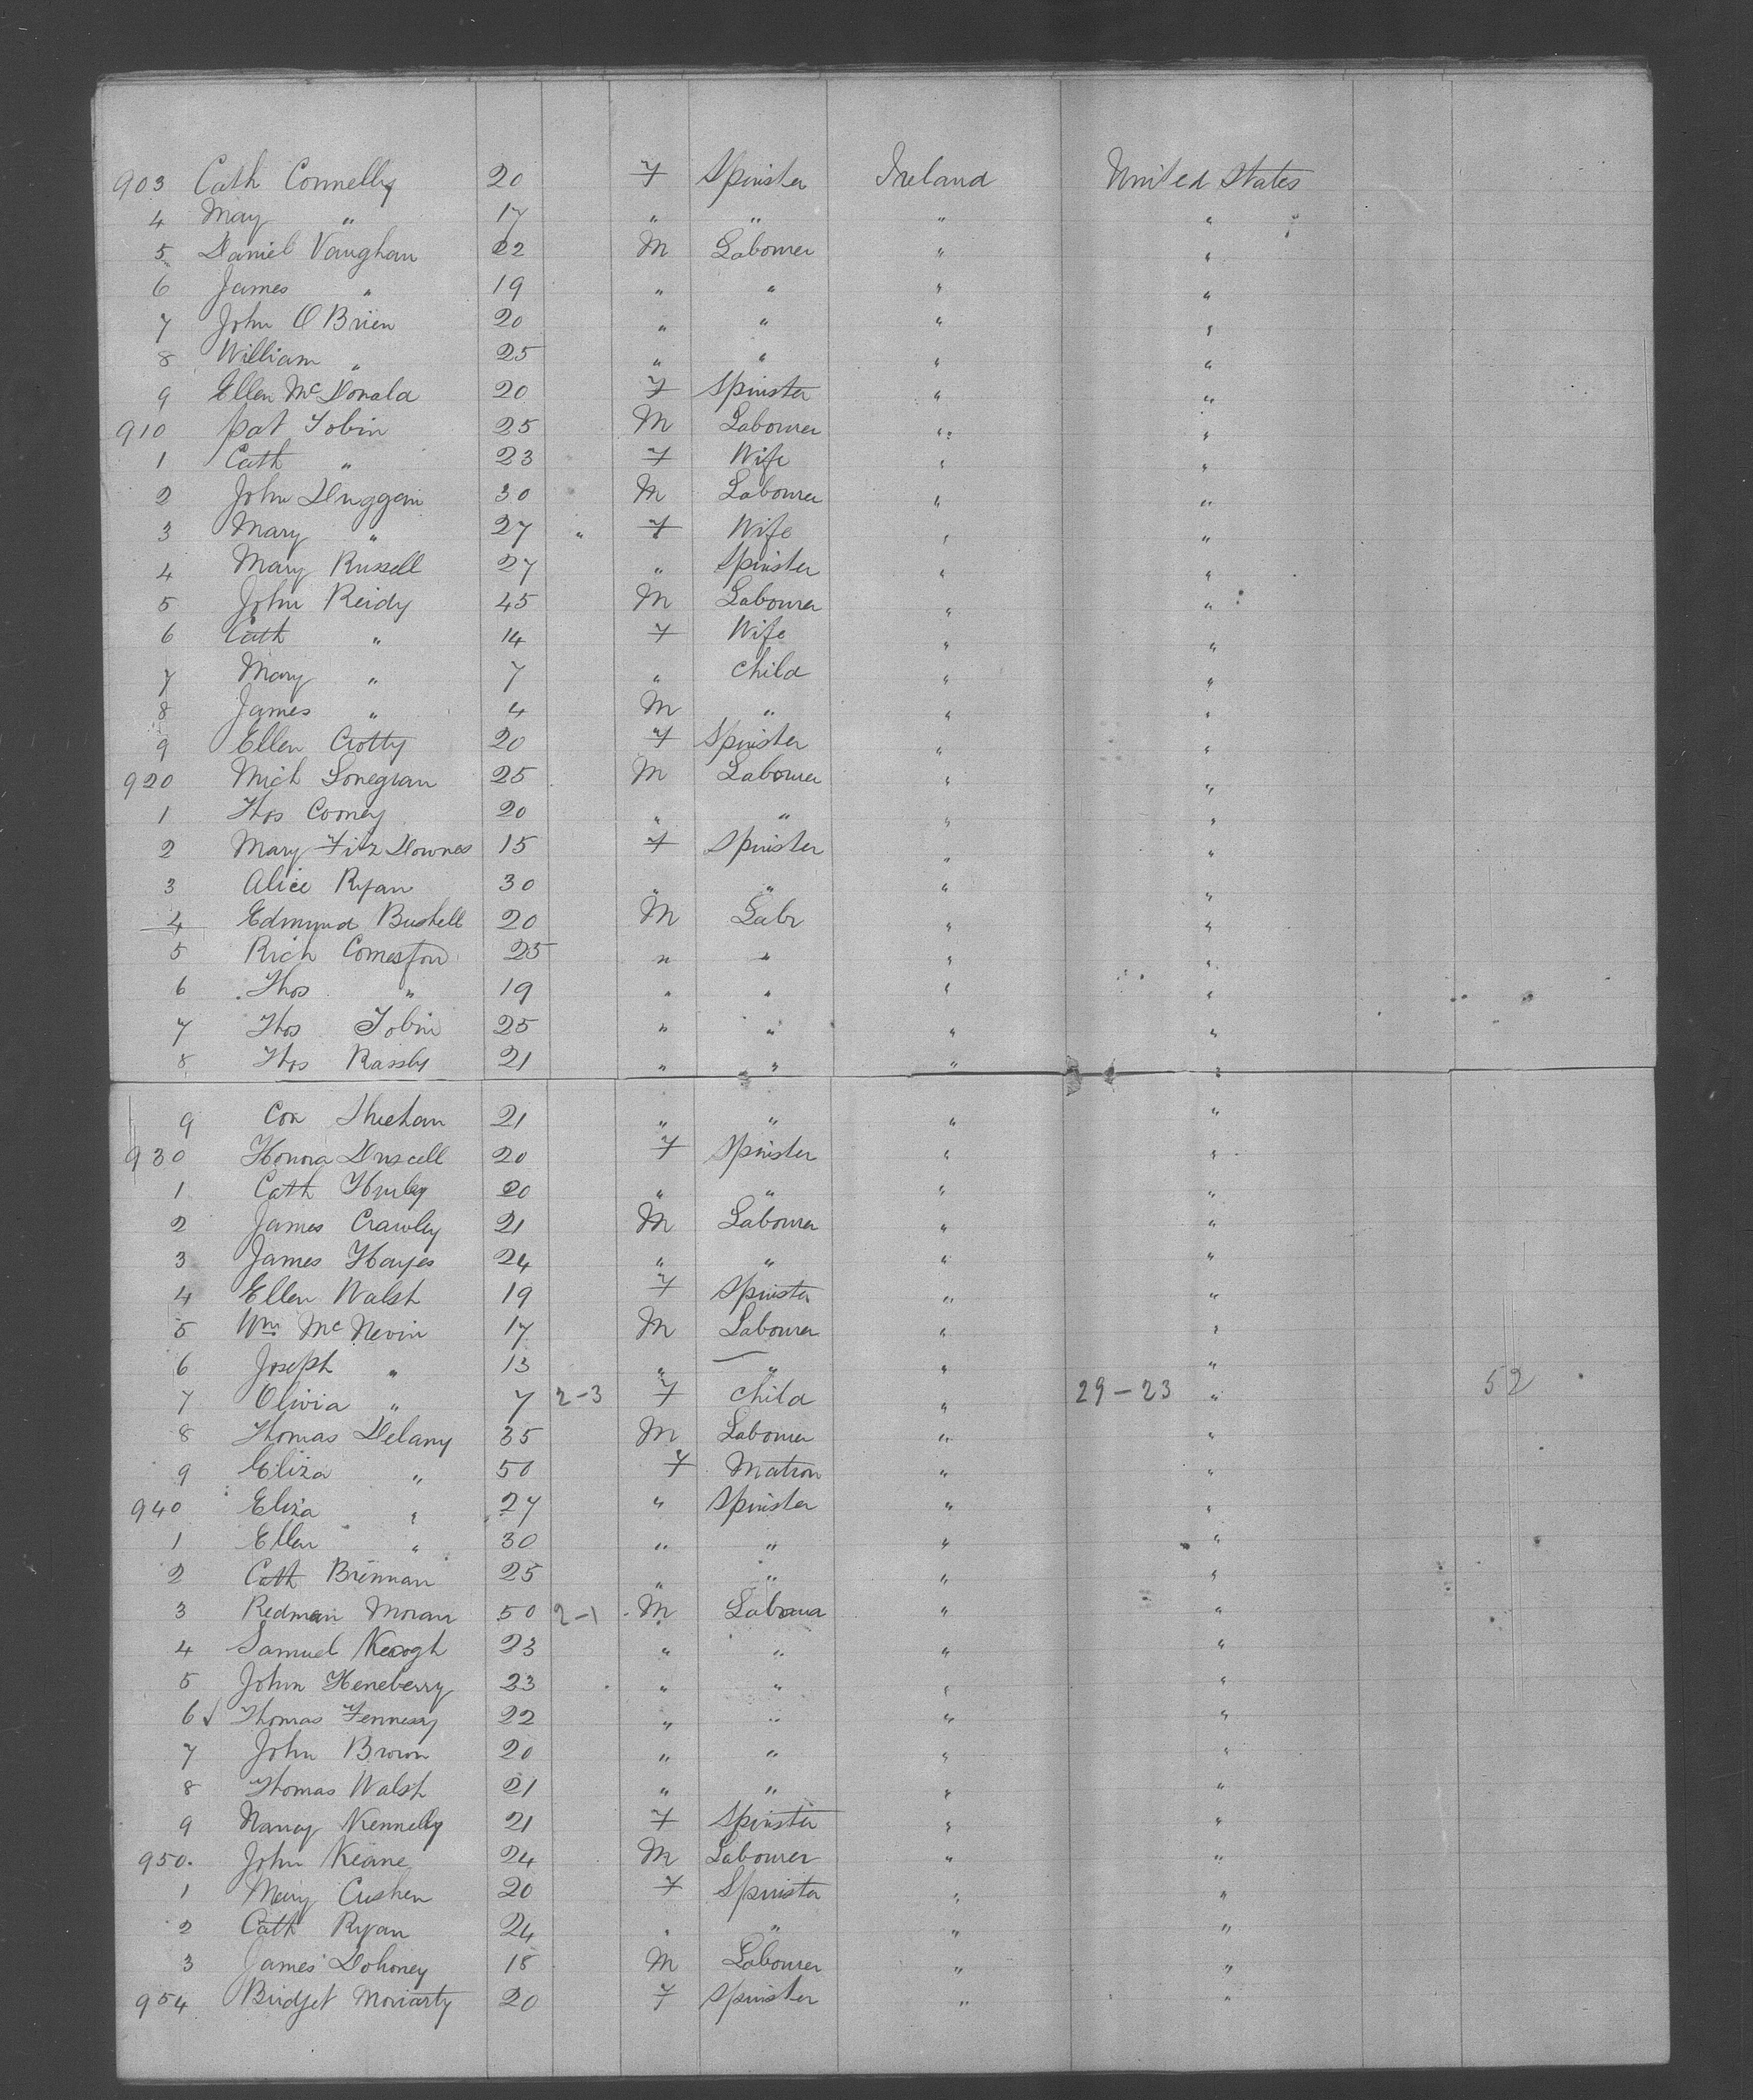 903 Cath Connelly 20 F Spinster Ireland United States
4 May " 17 " " " "
5 Daniel Vaughan 22 M Labourer " "
6 James " 19 " " " "
7 John O Brien 20 " " " "
8 William " 25 " " " "
9 Ellen McDonald 20 F Spinster " "
910 Pat Tobin 25 M Labourer " "
1 Cath " 23 F Wife " "
2 John Duggan 30 M Labourer " "
3 Mary " 27 " F Wife " "
4 Mary Russell 27 " Spinster " "
5 John Reidy 45 M Labourer " "
6 Cath " 14 F Wife " "
7 Mary " 7 " Child " "
8 James " 4 M " " "
9 Ellen Crotty 20 F Spinster " "
920 Mich Lonegran 25 M Labourer " "
1 Thos Cooney 20 " " " "
2 Mary Fitz Downes 15 F Spinster " "
3 Alice Ryan 30 " " " "
4 Edmund Bushell 20 M Labr " "
5 Rich Comesford 25 " " " "
6 Thos " 19 " " " "
7 Thos Tobin 25 " " " "
8 Thos 21 " " " "
9 Con Sheehan 21 " " " "
930 Honora Driscell 20 F Spinster " "
1 Cath Hurley 20 " " " "
2 James Crawley 21 M Labourer " "
3 James Hayes 24 " " " "
4 Ellen Walsh 19 F Spinster " "
5 Wm McNevin 17 M Labourer " "
6 Joseph " 13 " " " "
7 Olivia " 7 2-3 F Child " 29-23 " 52
8 Thomas Delany 35 M Labourer " "
9 Eliza " 50 F Matron " "
940 Eliza " 27 " Spinster " "
1 Ellen " 30 " " " "
2 Cath Brennan 25 " " " "
3 Redman Moran 50 2-1 M Labourer " "
4 Samuel Keogh 23 " " " "
5 John Heneberry 23 " " " "
6 √ Thomas Fennessy 22 " " " "
7 John Brown 20 " " " "
8 Thomas Walsh 21 " " " "
9 Nancy Kennelly 21 F Spinster " "
950. John Keane 24 M Labourer " "
1 Mary Cushen 20 F Spinster " "
2 Cath Ryan 24 " " " "
3 James Dohoney 18 M Labourer " "
954 Bridget Moriarty 20 F Spinster " "